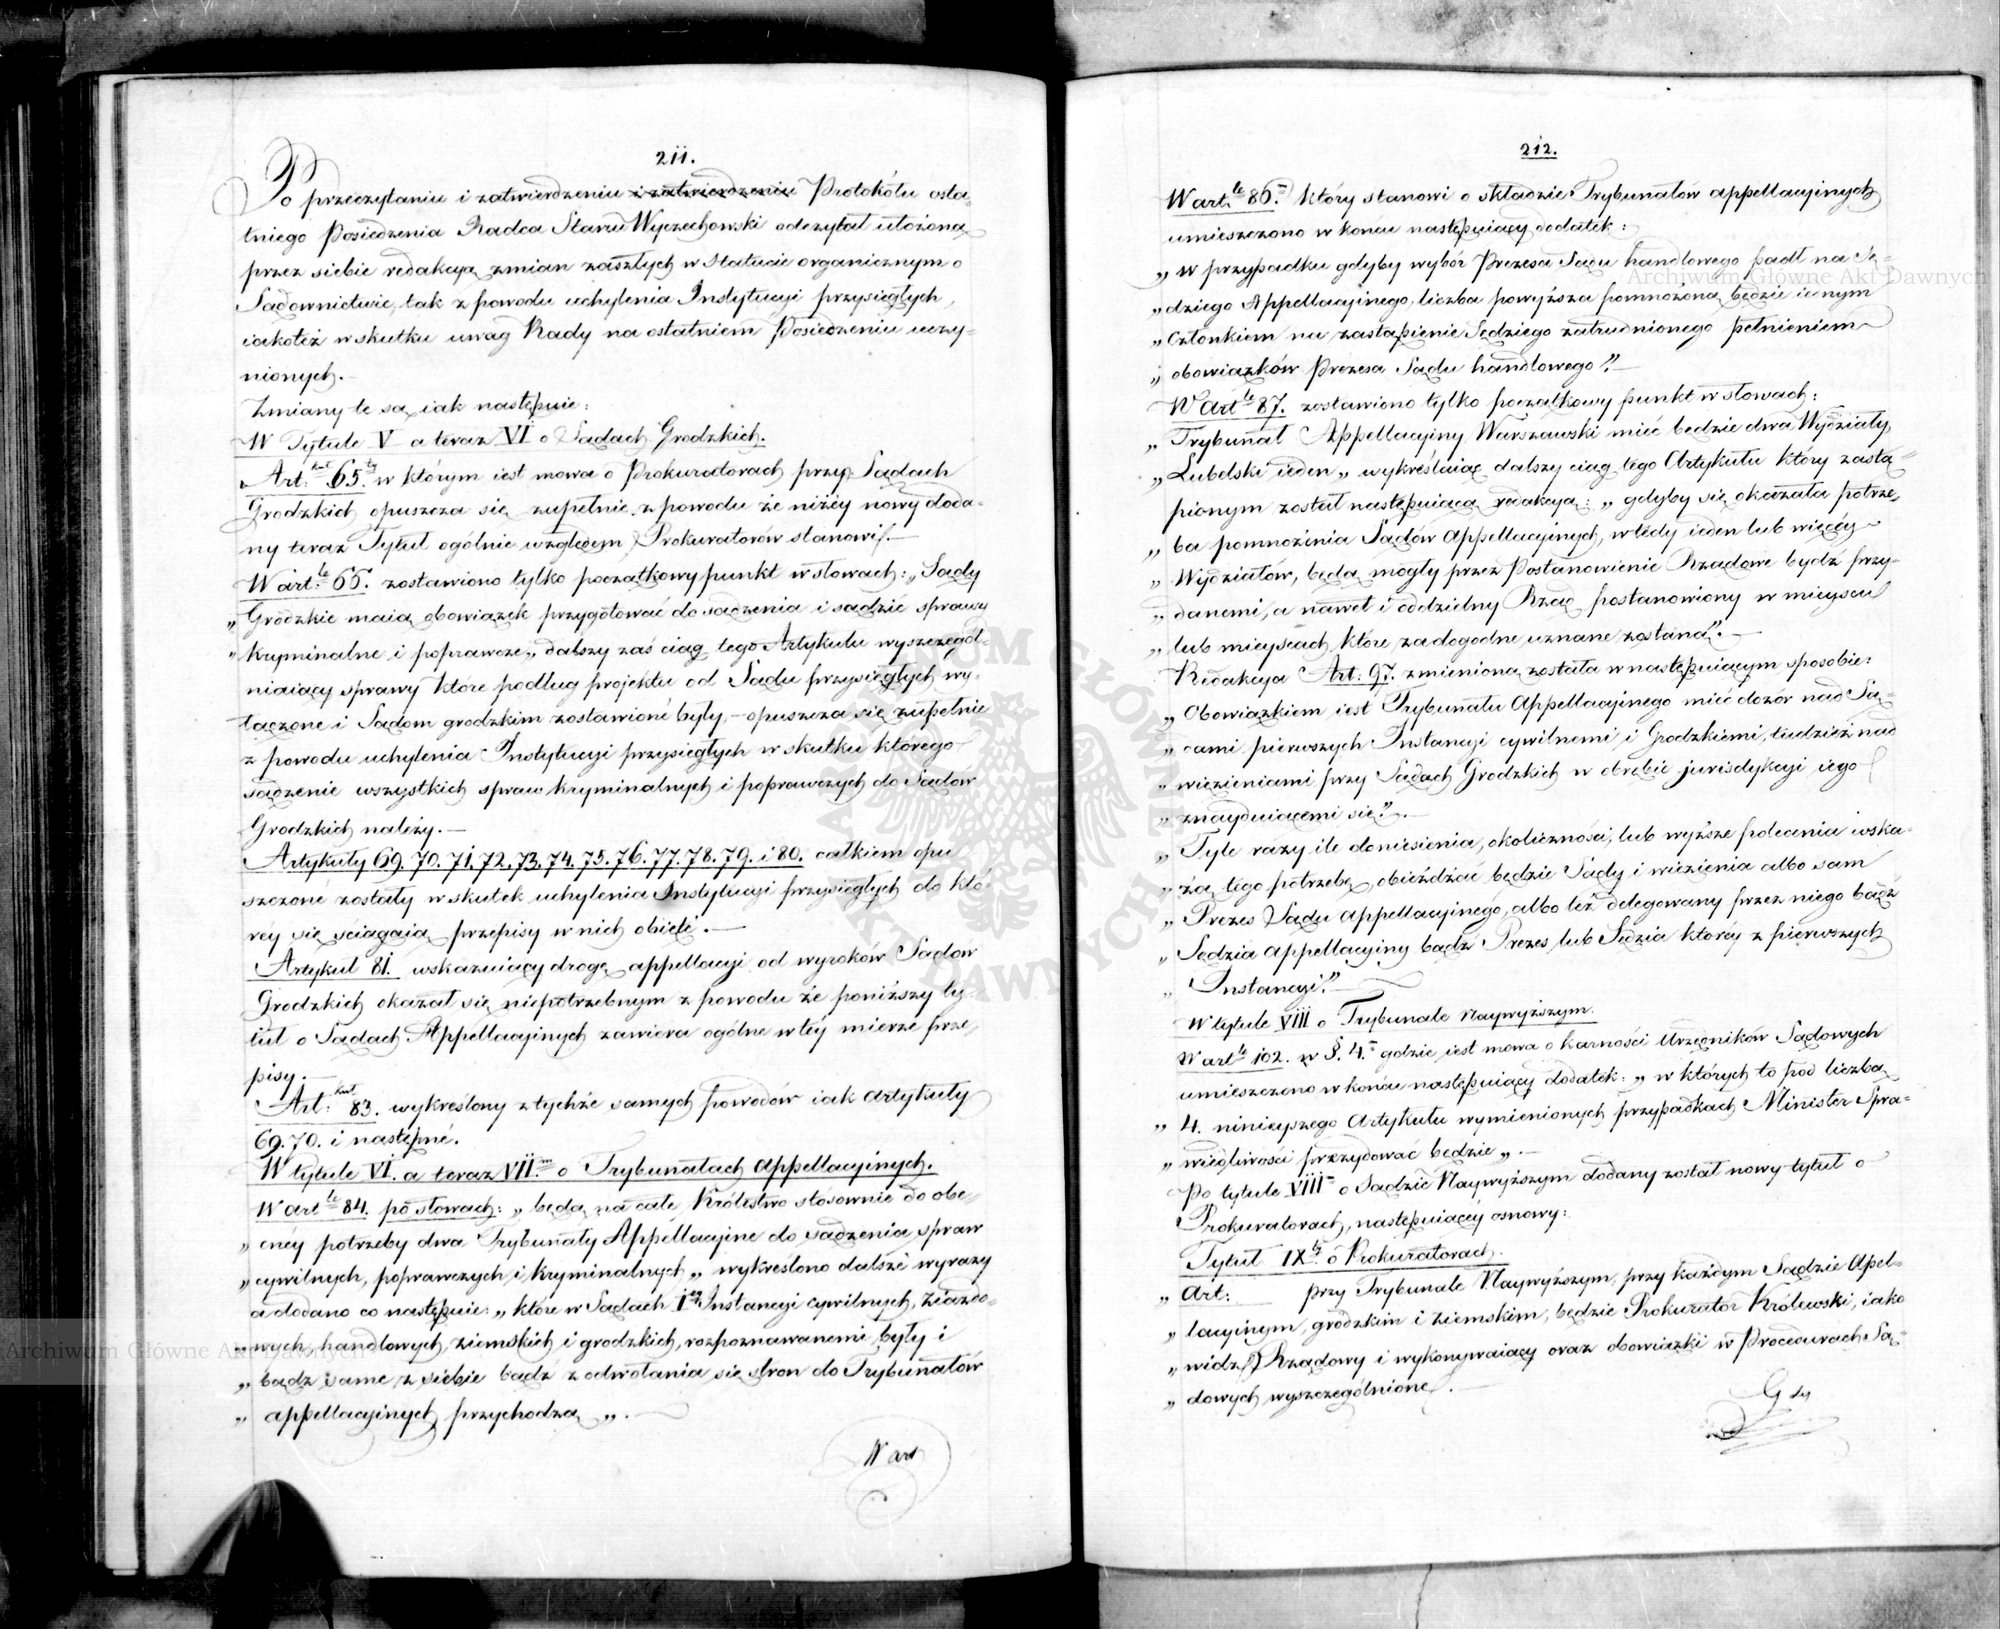 211.
Po przeczytaniu i zatwierdzeniu i zatwierdzeniu Protokółu osta-
tniego Posiedzenia Radca Stanu Wyczechowski odczytał ułożoną
przez siebie redakcyą zmian zaszłych w Statucie organicznym o
Sądownictwie, tak z powodu uchylenia Instytucyi przysięgłych,
iakoteż w skutku uwag Rady na ostatniem Posiedzeniu uczy-
nionych.-
Zmiany te są iak następuie:
W Tytule V a teraz VI o Sądach Grodzkich.
Art: kuł 65. ty w którym iest mowa o Prokuratorach przy Sądach
Grodzkich opuszcza się zupełnie z powodu że niżéy nowy doda-
ny teraz Tytuł ogólnie względem Prokuratorów stanowi.-
W art: le 66. zostawiono tylko początkowy punkt w słowach: „Sądy
„Grodzkie maią obowiązek przygotować do sądzenia i sądzić sprawy
„kryminalne i poprawcze„ dalszy zaś ciąg tego Artykułu wyszczegól-
niaiący sprawy które podług projektu od Sądu przysięgłych wy-
łączone i Sądom grodzkim zostawione były,- opuszcza się zupełnie
z powodu uchylenia Instytucyi przysięgłych w skutku którego
sądzenie wszystkich spraw kryminalnych i poprawczych do Sądów
Grodzkich należy.-
Artykuły 69. 70. 71. 72. 73. 74. 75. 76. 77. 78. 79. i 80. całkiem opu
szczone zostały w skutek uchylenia Instytucyi przysięgłych do któ-
rey się sciągaią przepisy w nich obięte.-
Artykuł 81. wskazuiący drogę appellacyi od wyroków Sądow
Grodzkich okazał się niepotrzebnym z powodu że poniższy ty-
tuł o Sądach Appellacyinych zawiera ogólne w téy mierze prze,
pisy.-
Art: kuł 83. wykreślony z tychże samych powodów iak artykuły
69. 70. i następne.
W tytule VI. a teraz VII. m o Trybunałach appellacyinych.
W art le 84. po słowach: „będą na całe Królestwo stósownie do obe-
„cney potrzeby dwa Trybunały Appellacyine do sądzenia spraw
„cywilnych, poprawczych i kryminalnych„ wykreślono dalsze wyrazy
a dodano co następuie: „które w Sądach I éy Instancyi cywilnych, Ziazdo-
„wych, handlowych, ziemskich i grodzkich, rozpoznawanemi były i
„bądź same z siebie bądź z odwołania się stron do Trybunałów
„appellacyinych przychodzą„.-
W art
212.
W art. le 86. który stanowi o składzie Trybunałów appellacyinych
umieszczono w końcu następuiący dodatek:
„w przypadku gdyby wybór Prezesa Sądu handlowego padł na Sę-
„dziego Appellacyinego, liczba powyższa pomnożoną będzie iednym
„członkiem na zastąpienie Sędziego zatrudnionego pełnieniem
„obowiązków Prezesa Sądu handlowego".-
W Art le 87. zostawiono tylko początkowy punkt w słowach:
„Trybunał Appellacyiny Warszawski mieć będzie dwa Wydziały,
„Lubelski ieden„ wykreślaiąc dalszy ciąg tego Artykułu który zastą-
pionym został następuiącą redakcyą: „gdyby się okazała potrze,
„ba pomnożenia Sądów appellacyinych, w tedy ieden lub więcéy
„Wydziałów, będą mogły przez Postanowienie Rządowe bydź przy-
„danemi, a nawet i oddzielny Rząd postanowiony w mieyscu
„lub mieyscach, które za dogodne uznane zostaną".-
Redakcya Art: 97. zmienioną została w następuiącym sposobie:
„Obowiązkiem iest Trybunału Appellacyinego mieć dozór nad Są-
„dami pierwszych Instancyi cywilnemi i Grodzkiemi, tudzież nad
„więzieniami przy Sądach Grodzkich w obrębie jurisdykcyi iego
„znayduiącemi się".-
„Tyle razy ile doniesienia, okoliczności, lub wyższe polecenia wska-
„żą tego potrzebę, obieżdżać będzie Sądy i więzienia albo sam
„Prezes Sądu Appellacyinego, albo też delegowany przez niego bądź
„Sędzia appellacyiny bądź Prezes, lub Sędzia któréy z pierwszych
„Instancyi".-
W tytule VIII o Trybunale Naywyższym.
W art le 102. w §. 4. gdzie iest mowa o karności Urzędników Sądowych
umieszczono w końcu następuiący dodatek: „w których to pod liczbą
„4. ninieyszego Artykułu wymienionych przypadkach Minister Spra-
„wiedliwości prezydować będzie„.-
Po tytule VIII o Sądzie Naywyższym dodany został nowy tytuł o
Prokuratorach, następuiącey osnowy:
Tytuł IX ty o Prokuratorach.
„Art: przy Trybunale Naywyższym, przy każdym Sądzie Apel-
„lacyinym, grodzkim i Ziemskim, będzie Prokurator Królewski, iako
„widz Rządowy i wykonywaiący oraz obowiązki w Procedurach Są-
„dowych wyszczególnione.-
Gdy
Archiwum Główne Akt Dawnych
Archiwum Główne Akt Dawnych
ARCHIWUM GŁÓWNE AKT DAWNYCH